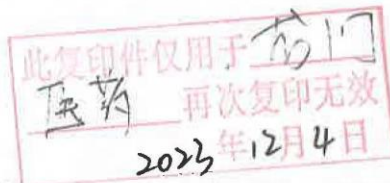 此复印件仅用于
医药 再次复印无效
2023年12月4日